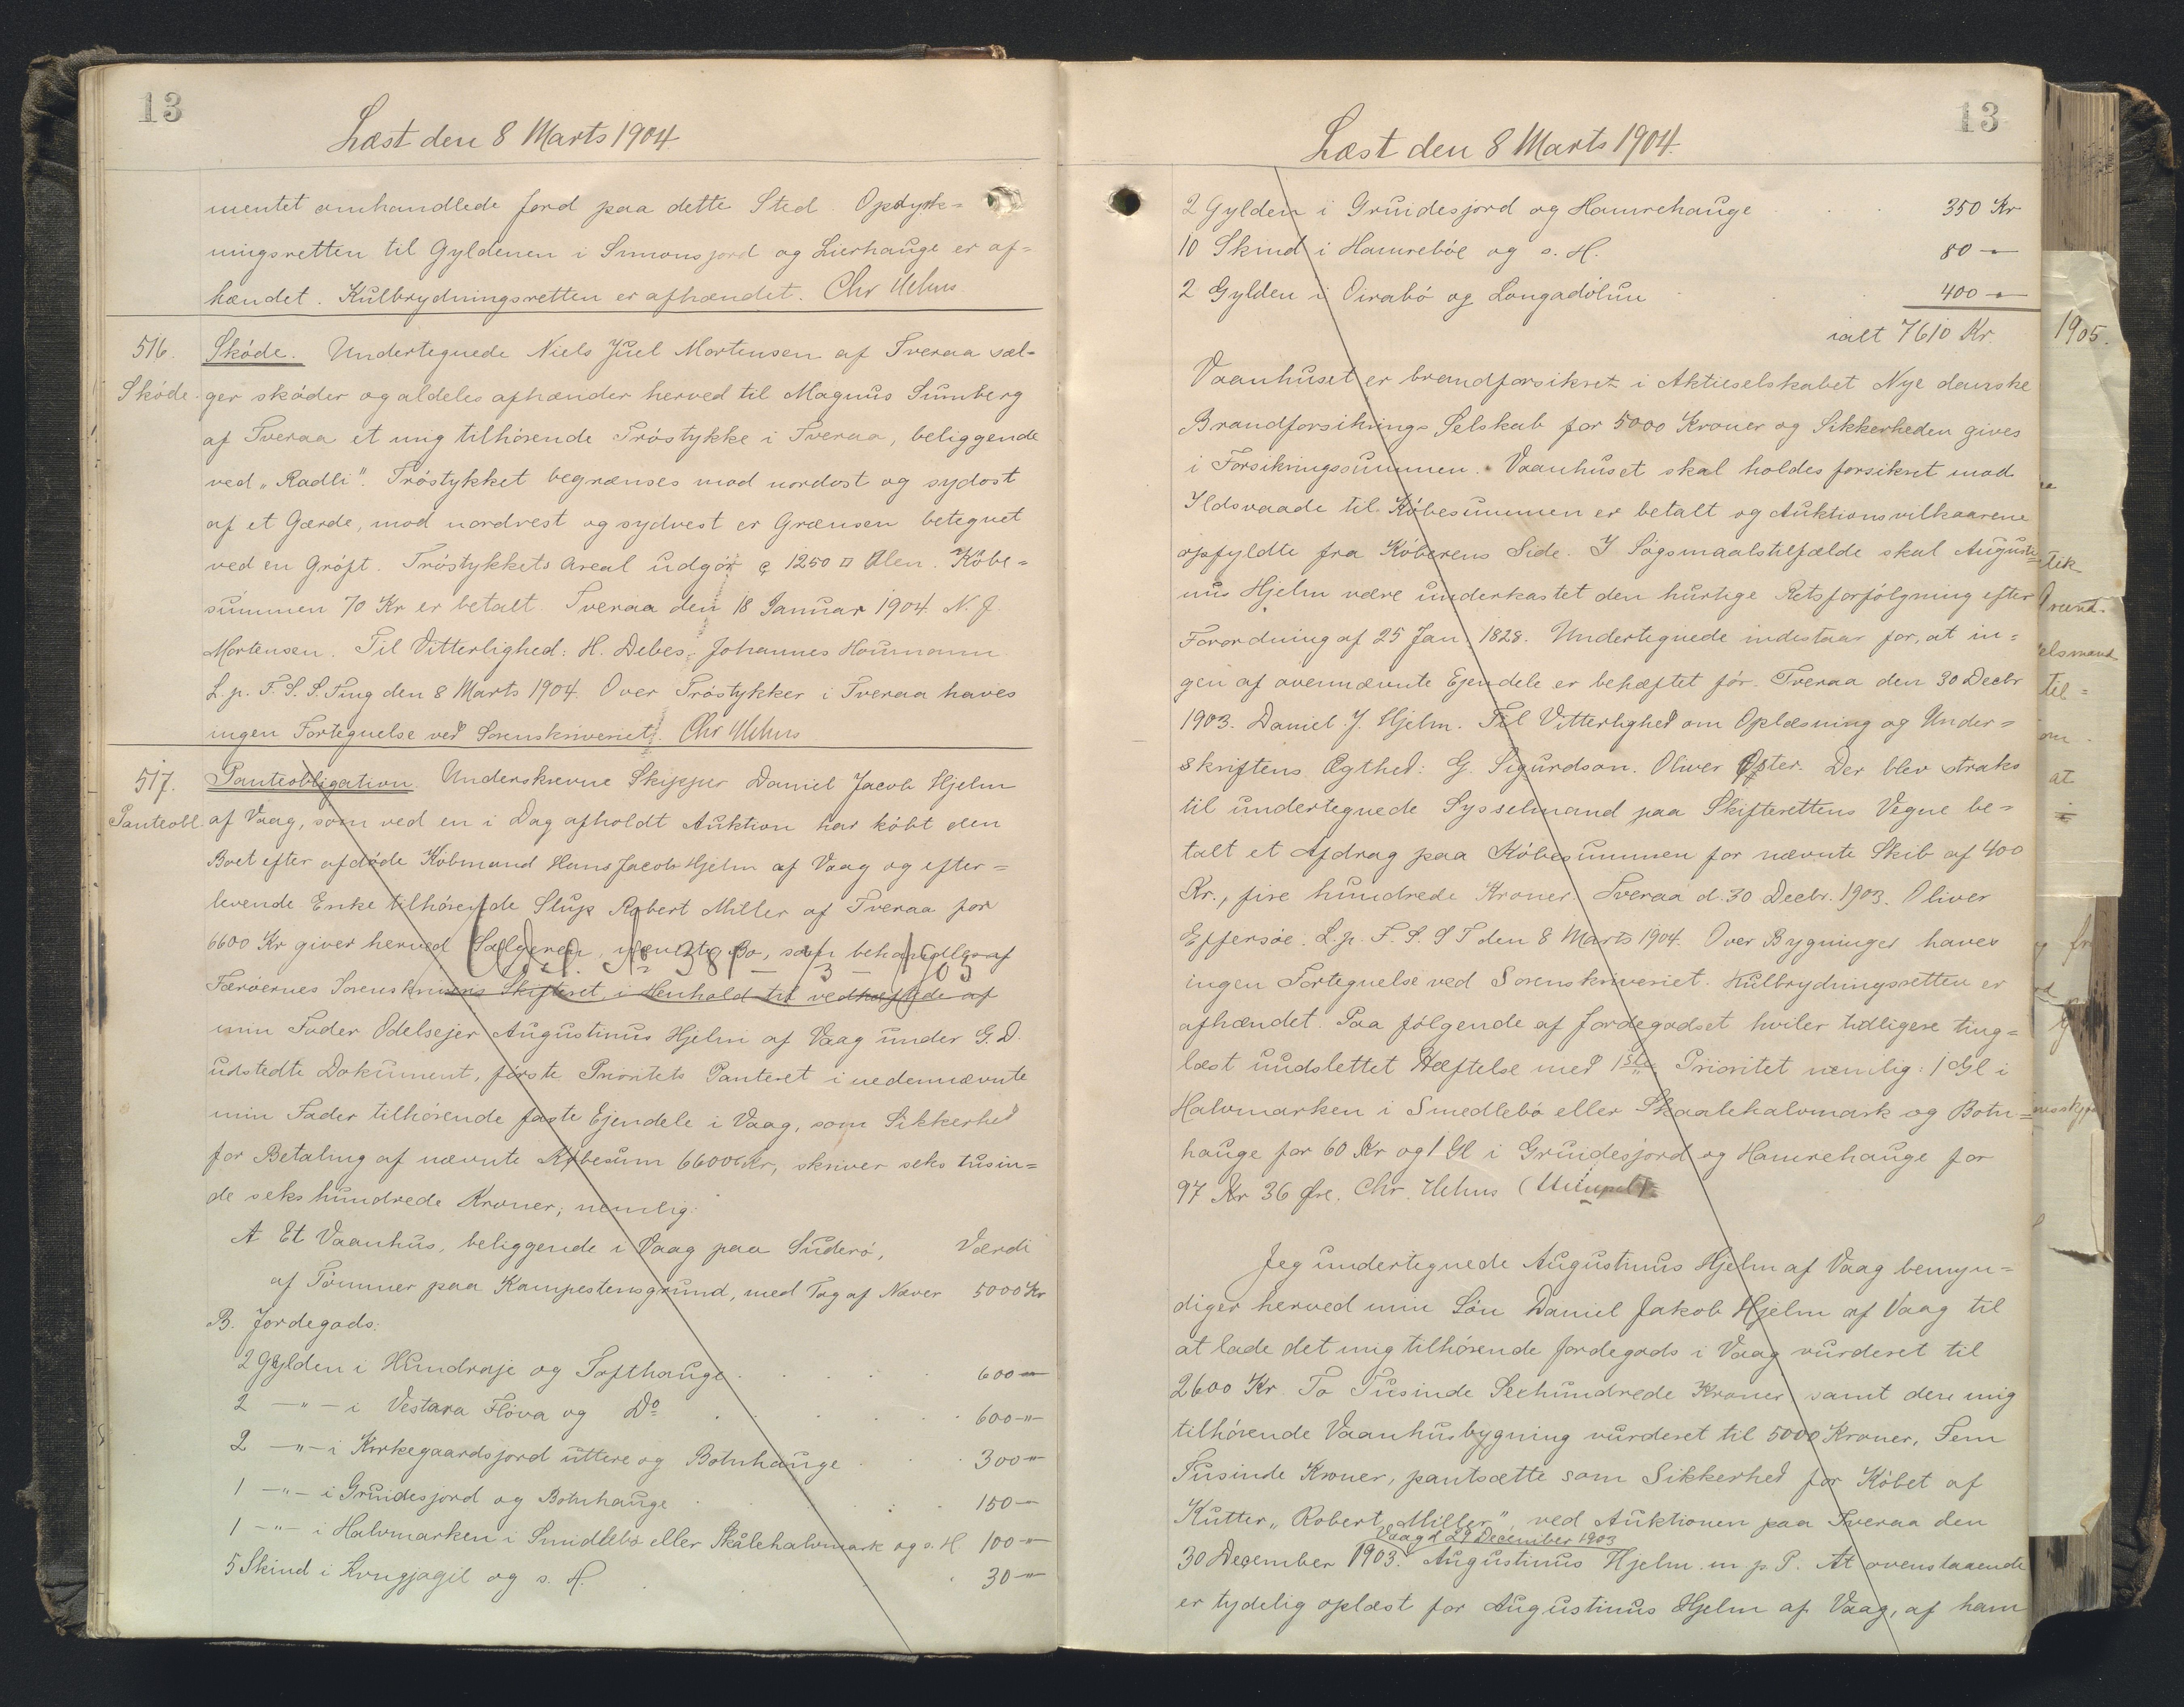 13
Læst den 8 Marts 1904
mentet omhandlede Jord paa dette Sted. Opdyrk=
ningsretten til Gyldenen i Simonsjord og Lierhauge er af=
hændet. Kulbrydningsretten er afhændet. Chr Uehus.
516. Skøde. Undertegnede Niels Juel Mortensen af Tveraa sæl-
Skøde. ger skøder og aldeles afhænder herved til Magnus Sumberg
af Tveraa et mig tilhørende Trøstykke i Tveraa, beliggende
ved „Radli". Trøstykket begrænses mod nordost og sydost
af et Gærde, mod nordvest og sydvest er Grænsen betegnet
ved en Grøft. Trøstykkets Areal udgør c 1250 □ Alen. Købe=
summen 70 Kr er betalt. Tveraa den 18 Januar 1904. N. J.
Mortensen. Til Vitterlighed: H. Debes, Johannes Houmann
L. p. F. S. S. Ting den 8 Marts 1904. Over Trøstykker i Tveraa haves
ingen Fortegnelse ved Sorenskriveriet. Chr Uehus
517. Panteobligation. Underskrevne Skipper Daniel Jacob Hjelm
Panteobl. af Vaag, som ved en i Dag afholdt Auktion har købt den
Boet efter afdøde Købmand Hans Jacob Hjelm af Vaag og efter=
levende Enke tilhørende Slup Robert Miller af Tveraa for
6600 Kr giver herved Sælgeren, nævnte Bo, som behandles af
Udsl. No 381 - 1/3 - 1905
Færøernes Sorenskrivers Skifteret, i Henhold til vedhæftede af
min Fader Odelsejer Augustinus Hjelm af Vaag under G. D.
udstedte Dokument, første Prioritets Panteret i nedennævnte
min Fader tilhørende faste Ejendele i Vaag, som Sikkerhed
for Betaling af nævnte Købesum 6600 Kr, skriver seks tusin=
de seks hundrede Kroner, nemlig:
A Et Vaanhus, beliggende i Vaag paa Suderø, Værdi
af Tømmer paa Kampestensgrund, med Tag af Næver 5000 Kr
B. Jordegods:
2 Gylden i Hundraje og Tofthauge . . . 600 -
2 -"- i Vestara Fløva og Do . . . 600 -"-
2 -"- i Kirkegaardsjord uttere og Botnhauge . . 300 -"-
1 -"- i Gruidesjord og Botnhauge . . 150 -
1 -"- i Halvmarken i Smidlebø eller Skålehalvmark og s. H 100 -"-
5 Skind i Krugjagil og s. H. . . 30 -"-
13
Læst den 8 Marts 1904.
2 Gylden i Gruidesjord og Hamrehauge . . . 350 Kr
10 Skind i Hamrebøe og s. H. 80 -
2 Gylden i Oirabø og Longadølun 400 -
ialt 7610 Kr.
Vaanhuset er brandforsikret i Aktieselskabet Nye danske
Brandforsikrings Selskab for 5000 Kroner og Sikkerheden gives
i Forsikringssummen. Vaanhuset skal holdes forsikret mod
Ildsvaade til Købesummen er betalt og Auktionsvilkaarene
opfyldte fra Køberens Side. I Søgsmaalstilfælde skal Augusti=
nus Hjelm være underkastet den hurtige Retsforfølgning efter
Forordning af 25 Jan. 1828. Undertegnede indestaar for, at in=
gen af ovennævnte Ejendele er behæftet før. Tveraa den 30 Decbr
1903. Daniel J. Hjelm. Til Vitterlighed om Oplæsning og Under=
skriftens Ægthed: G. Sigurdson. Oliver Øster. Der blev straks
til undertegnede Sysselmand paa Skifterettens Vegne be=
talt et Afdrag paa Købesummen for nævnte Skib af 400
Kr., fire hundrede Kroner. Tveraa d. 30 Decbr. 1903. Oliver
Effersøe. L. p. F. S. S T den 8 Marts 1904. Over Bygninger haves
ingen Fortegnelse ved Sorenskriveriet. Kulbrydningsretten er
afhændet. Paa følgende af Jordegodset hviler tidligere ting=
læst uudslettet Hæftelse med 1ste Prioritet nemlig: 1 Gl i
Halvmarken i Smedlebø eller Skaalehalvmark og Botn=
hauge for 60 Kr og 1 Gl i Gruidesjord og Hamrehauge for
97 Kr 36 Øre. Chr. Uehus
Jeg undertegnede Augustinus Hjelm af Vaag bemyn=
diger herved min Søn Daniel Jakob Hjelm af Vaag til
at lade det mig tilhørende Jordegods i Vaag vurderet til
2600 Kr. To Tusinde Sexhundrede Kroner samt den mig
tilhørende Vaanhusbygning vurderet til 5000 Kroner, Fem
Tusinde Kroner, pantsætte som Sikkerhed for Købet af
Kutter „Robert Miller", ved Auktionen paa Tveraa den
Vaag d 29 December 1903
30 December 1903. Augustinus Hjelm m. p. P. At ovenstaaende
er tydelig oplæst for Augustinus Hjelm af Vaag, af ham
1905.
elsmand
til=
om
at